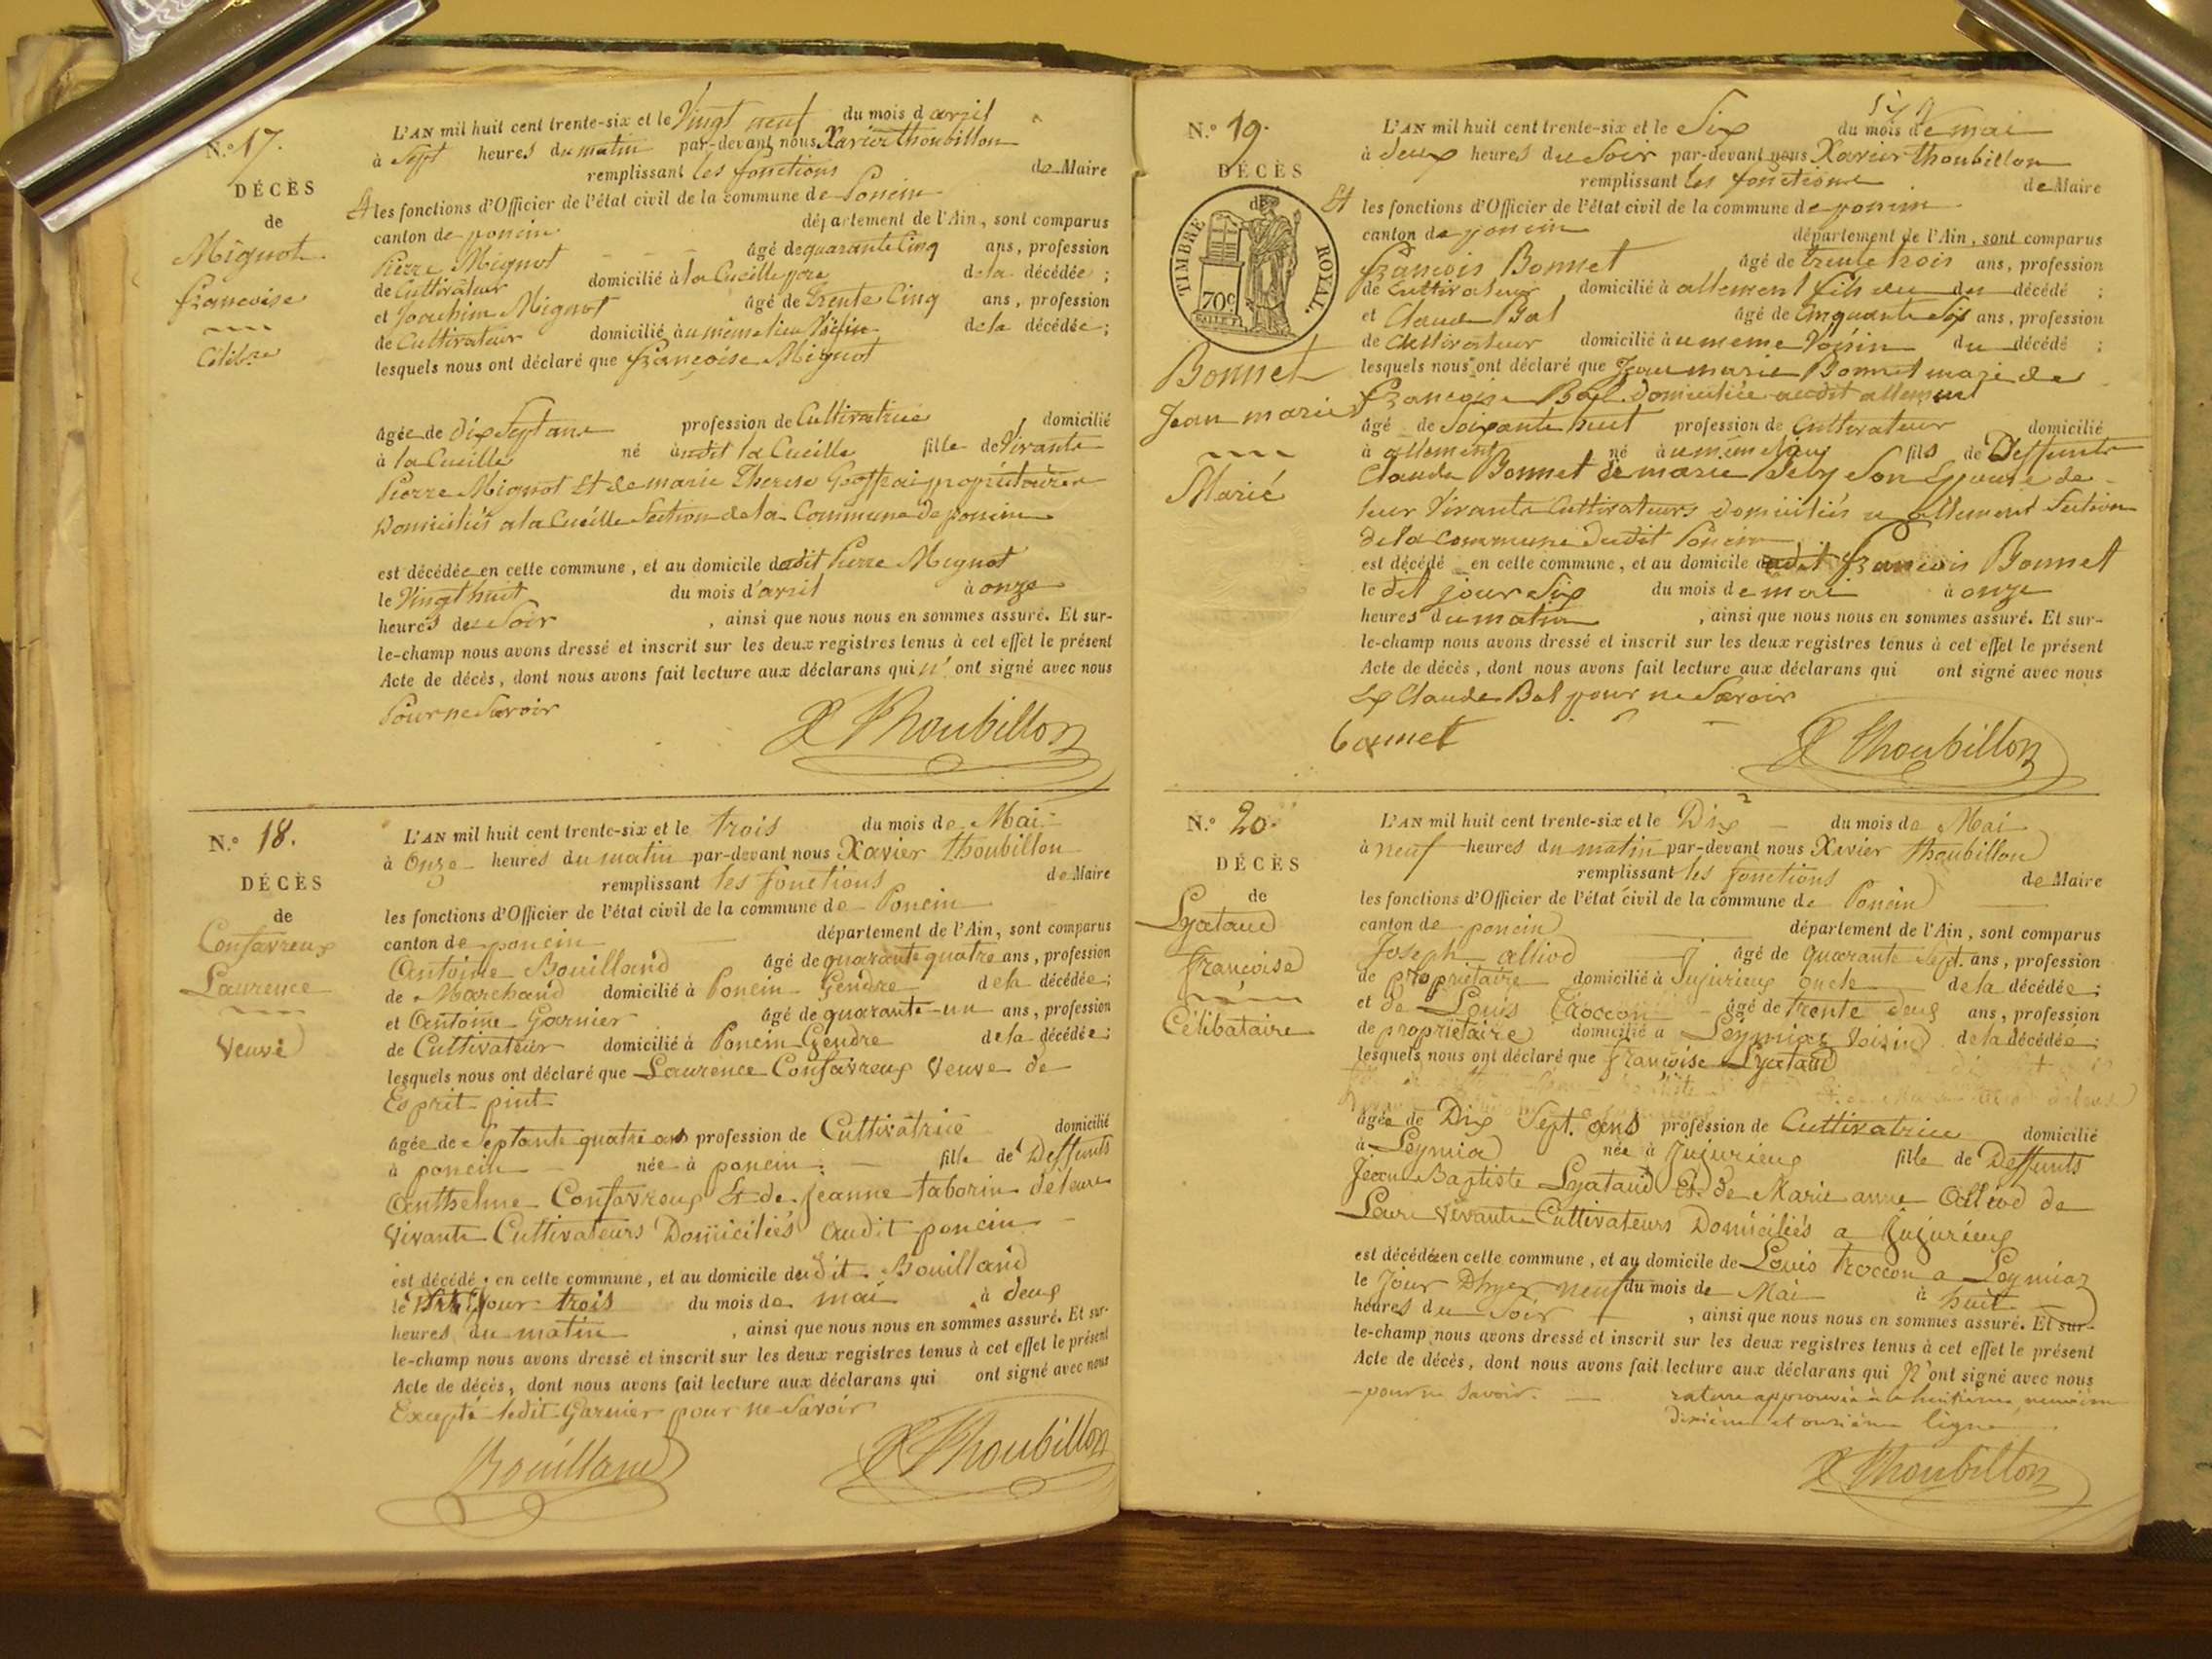 N.o 17.
DÉCÈS
de
Mignot
françoise
Célibre
L'AN mil huit cent trente-six et le Vingt neuf du mois d'avril
à Sept heures du matin par-devant nous Xavier thoubillon
remplissant les fonctions de Maire
Et les fonctions d'Officier de l'état civil de la commune de Poncin
canton de poncin département de l'Ain, sont comparus
Pierre Mignot âgé de quarante Cinq ans, profession
de Cultivateur domicilié à la Cueille pere de la décédée ;
et Joachim Mignot âgé de Trente Cinq ans, profession
de Cultivateur domicilié au même lieu Voisin de la décédée ;
lesquels nous ont déclaré que françoise Mignot
âgée de dix Sept ans profession de Cultivatrice domicilié
à la Cueille né audit la Cueille fille de Vivants
Pierre Mignot Et de marie Therese propriétaires
Domiciliés a la Cueille Section de la Commune de poncin
est décédée en cette commune, et au domicile dudit Pierre Mignot
le Vingt huit du mois d'avril à onze
heures du Soir , ainsi que nous nous en sommes assuré. Et sur-
le-champ nous avons dressé et inscrit sur les deux registres tenus à cet effet le présent
Acte de décès, dont nous avons fait lecture aux déclarans qui n' ont signé avec nous
Pour ne Savoir
X Thoubillon
N.o 18.
DÉCÈS
de
Confavreux
Laurence
Veuve
L'AN mil huit cent trente-six et le trois du mois de Mai
à Onze heures du matin par-devant nous Xavier thoubillon
remplissant les fonctions de Maire
les fonctions d'Officier de l'état civil de la commune de Poncin
canton de poncin département de l'Ain, sont comparus
Antoine Bouilland âgé de quarante quatre ans, profession
de Marchand domicilié à Poncin Gendre de la décédée ;
et Antoine Garnier âgé de quarante-un ans, profession
de Cultivateur domicilié à Poncin Gendre de la décédée ;
lesquels nous ont déclaré que Laurence Confavreux Veuve de
Esprit pint
âgée de Septante quatre ans profession de Cultivatrice domicilié
à poncin née à poncin fille de Deffunts
Anthelme Confavreux Et de jeanne taborin de leurs
Vivants Cultivateurs Domiciliés audit poncin
est décédé en cette commune, et au domicile dudit Bouilland
le dit jour trois du mois de mai à deux
heures du matin , ainsi que nous nous en sommes assuré. Et sur-
le-champ nous avons dressé et inscrit sur les deux registres tenus à cet effet le présent
Acte de décès, dont nous avons fait lecture aux déclarans qui ont signé avec nous
Excepté ledit Garnier pour ne Savoir
Bouilland X Thoubillon
N.o 19.
DÉCÈS
de
TIMBRE ROYAL
70c
Bonnet
Jean marie
Marié
L'AN mil huit cent trente-six et le Six du mois de mai
à deux heures du Soir par-devant nous Xavier thoubillon
remplissant les fonctions de Maire
Et les fonctions d'Officier de l'état civil de la commune de poncin
canton de poncin département de l'Ain, sont comparus
françois Bonnet âgé de trente trois ans, profession
de Cultivateur domicilié à allement fils du décédé ;
et Claude Bal âgé de Cinquante Six ans, profession
de Cultivateur domicilié au meme Voisin du décédé ;
lesquels nous ont déclaré que Jean marie Bonnet marié de
françoise Bal Domiciliée audit allement
âgé de Soixante huit profession de Cultivateur domicilié
à allement né au même lieu fils de Deffunts
Claude Bonnet de marie Son Epouse de
leur Vivants Cultivateurs Domiciliés a Allement Section
de la commune dudit Poncin
est décédé en cette commune, et au domicile dudit françois Bonnet
le dit jour Six du mois de mai à onze
heures du matin , ainsi que nous nous en sommes assuré. Et sur-
le-champ nous avons dressé et inscrit sur les deux registres tenus à cet effet le présent
Acte de décès, dont nous avons fait lecture aux déclarans qui ont signé avec nous
Claude Bal pour ne Savoir
bonnet X Thoubillon
N.o 20.
DÉCÈS
de
Lyataud
françoise
Célibataire
L'AN mil huit cent trente-six et le Dix du mois de Mai
à neuf heures du matin par-devant nous Xavier thoubillon
remplissant les fonctions de Maire
les fonctions d'Officier de l'état civil de la commune de Poncin
canton de poncin département de l'Ain, sont comparus
Joseph alliod âgé de quarante Sept ans, profession
de propriétaire domicilié à Jujurieux oncle de la décédée ;
et de Louis Troccon âgé de trente deux ans, profession
de propriétaire domicilié a Leymiaz Voisin de la décédée ;
lesquels nous ont déclaré que françoise Lyataud
âgée de Dix Sept ans profession de Cultivatrice domicilié
à Leymia née à Jujurieux fille de Deffunts
Jean Baptiste Lyataud Et de Marie anne Alliod de
Leur Vivants Cultivateurs Domiciliés a Jujurieux
est décédée en cette commune, et au domicile de Louis troccon a Leymiaz
le Jour D'hyer neuf du mois de Mai à huit
heures du Soir , ainsi que nous nous en sommes assuré. Et sur-
le-champ nous avons dressé et inscrit sur les deux registres tenus à cet effet le présent
Acte de décès, dont nous avons fait lecture aux déclarans qui N'ont signé avec nous
pour ne Savoir. rature approuvée à la huitième neuvième
dixième et onzième ligne
X Thoubillon